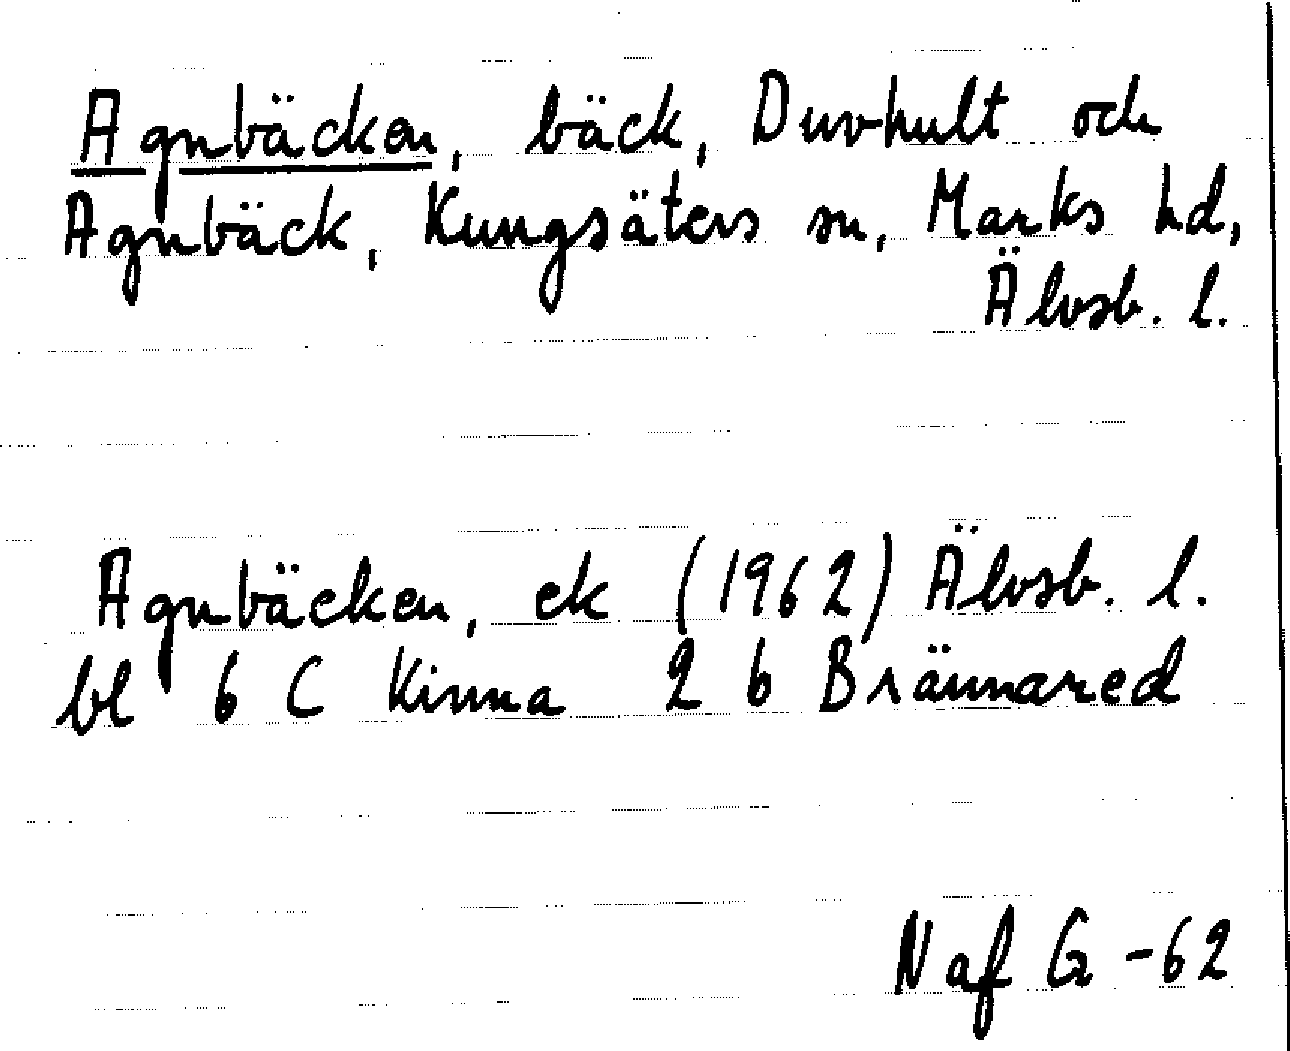 Agnbäcken, bäck, Duvhult och
Agnbäck, Kungsäters sn, Marks hd,
Älvsb. l.
Agnbäcken, ek (1962) Älvsb. l.
bl 6 C Kinna 2 b Brännared
Naf G -62